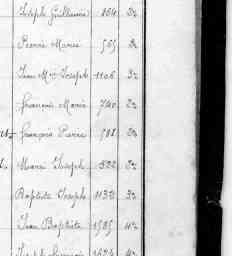 Joseph Guillaume 864 3e
Pierre Marie 565 3e
Jean Mie Joseph 1106 3e
François Marie 740 2e
François Pierre 2e
Marie Joseph 522 2e
Baptiste Joseph 1132 3e
Jean Baptiste 1585 4e
Joseph François 4e